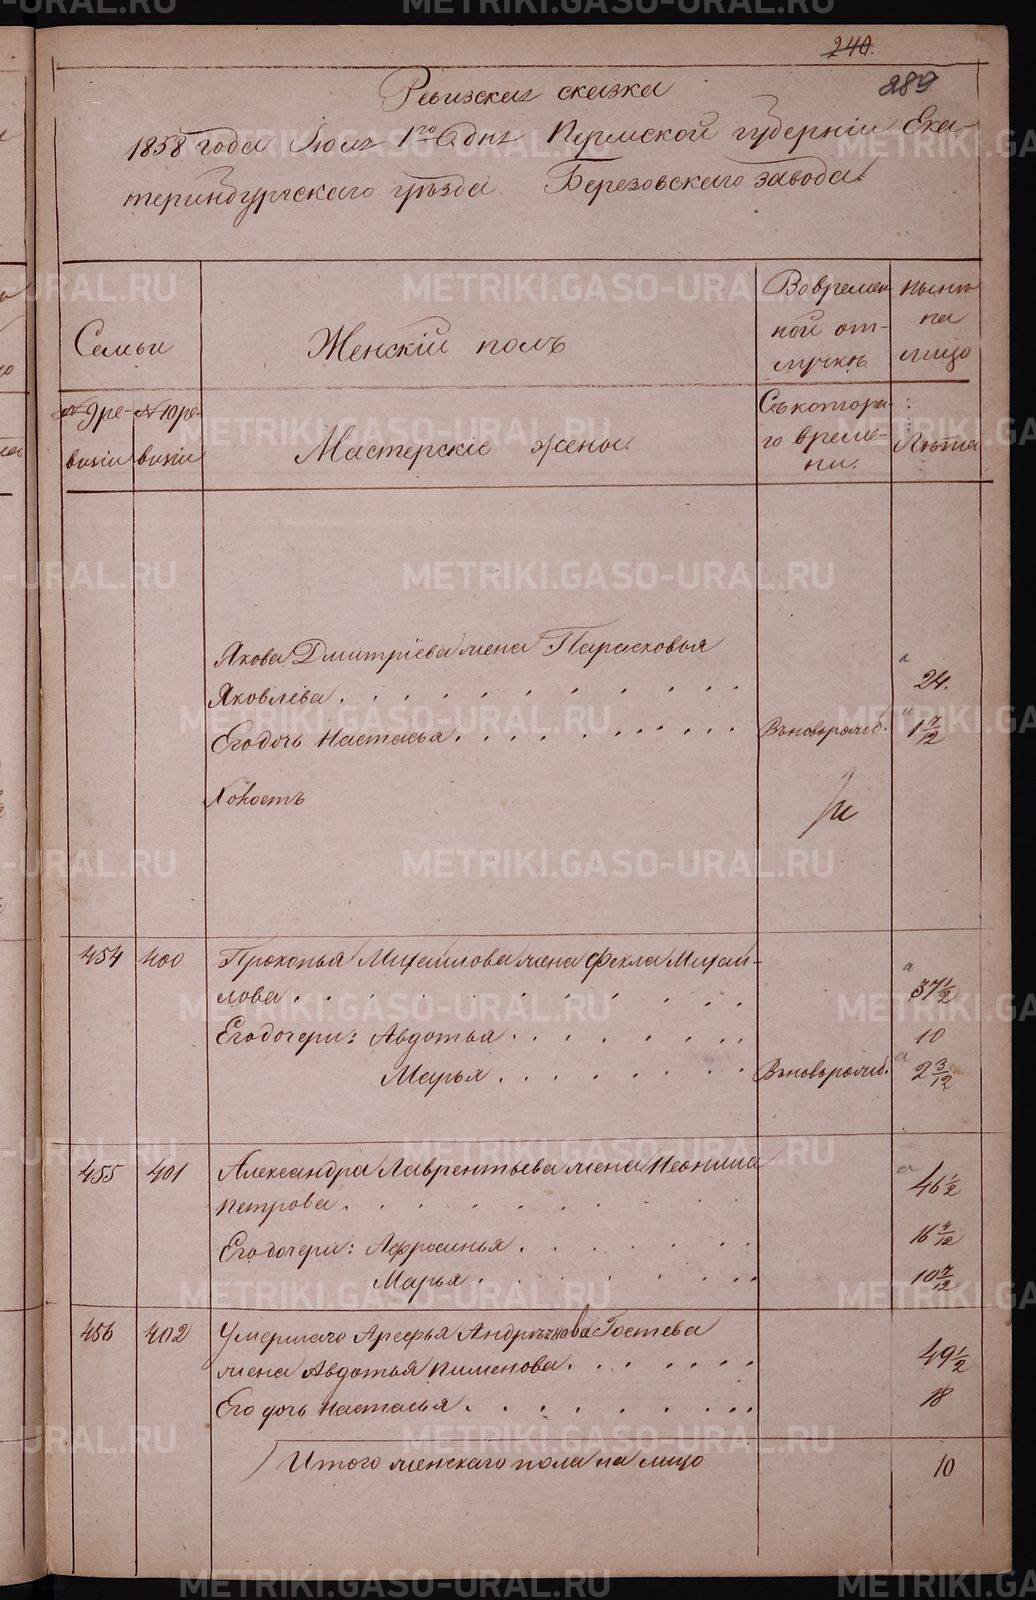 240.
289
Ревизская сказка
1858 года Июля 1го дня Пермской губерніи Ека-
теринбургскаго уѣзда Березовскаго завода.
Семьи
Женскій полъ
Во времен-
ной от-
лучкѣ
нынѣ
на
лицо
№ 9 ре-
визіи
№ 10 ре-
визіи
Мастерскіе жены.
Съ котора-
го време-
ни.
Лѣта
Якова Дмитріева жена Парасковья
Яковлева 24.
Его дочь Настасья Въ новорожд. 1 7/12
Холостъ
454 400 Прокопья Михаилова жена Фекла Михаи-
лова 37 1/2
Его дочери: Авдотья 10
Марья Въ новорожд. 2 3/12
455 401 Александра Лаврентьева жена Неонила
Петрова 46 1/2
Его дочери: Афросинья 16
Марья 10 7/12
456 402 Умершаго Арефья Гостева
жена Авдотья Пименова 49 1/2
Его дочь Настасья 18
Итого женскаго пола на лицо 10
METRIKI.GASO-URAL.RU